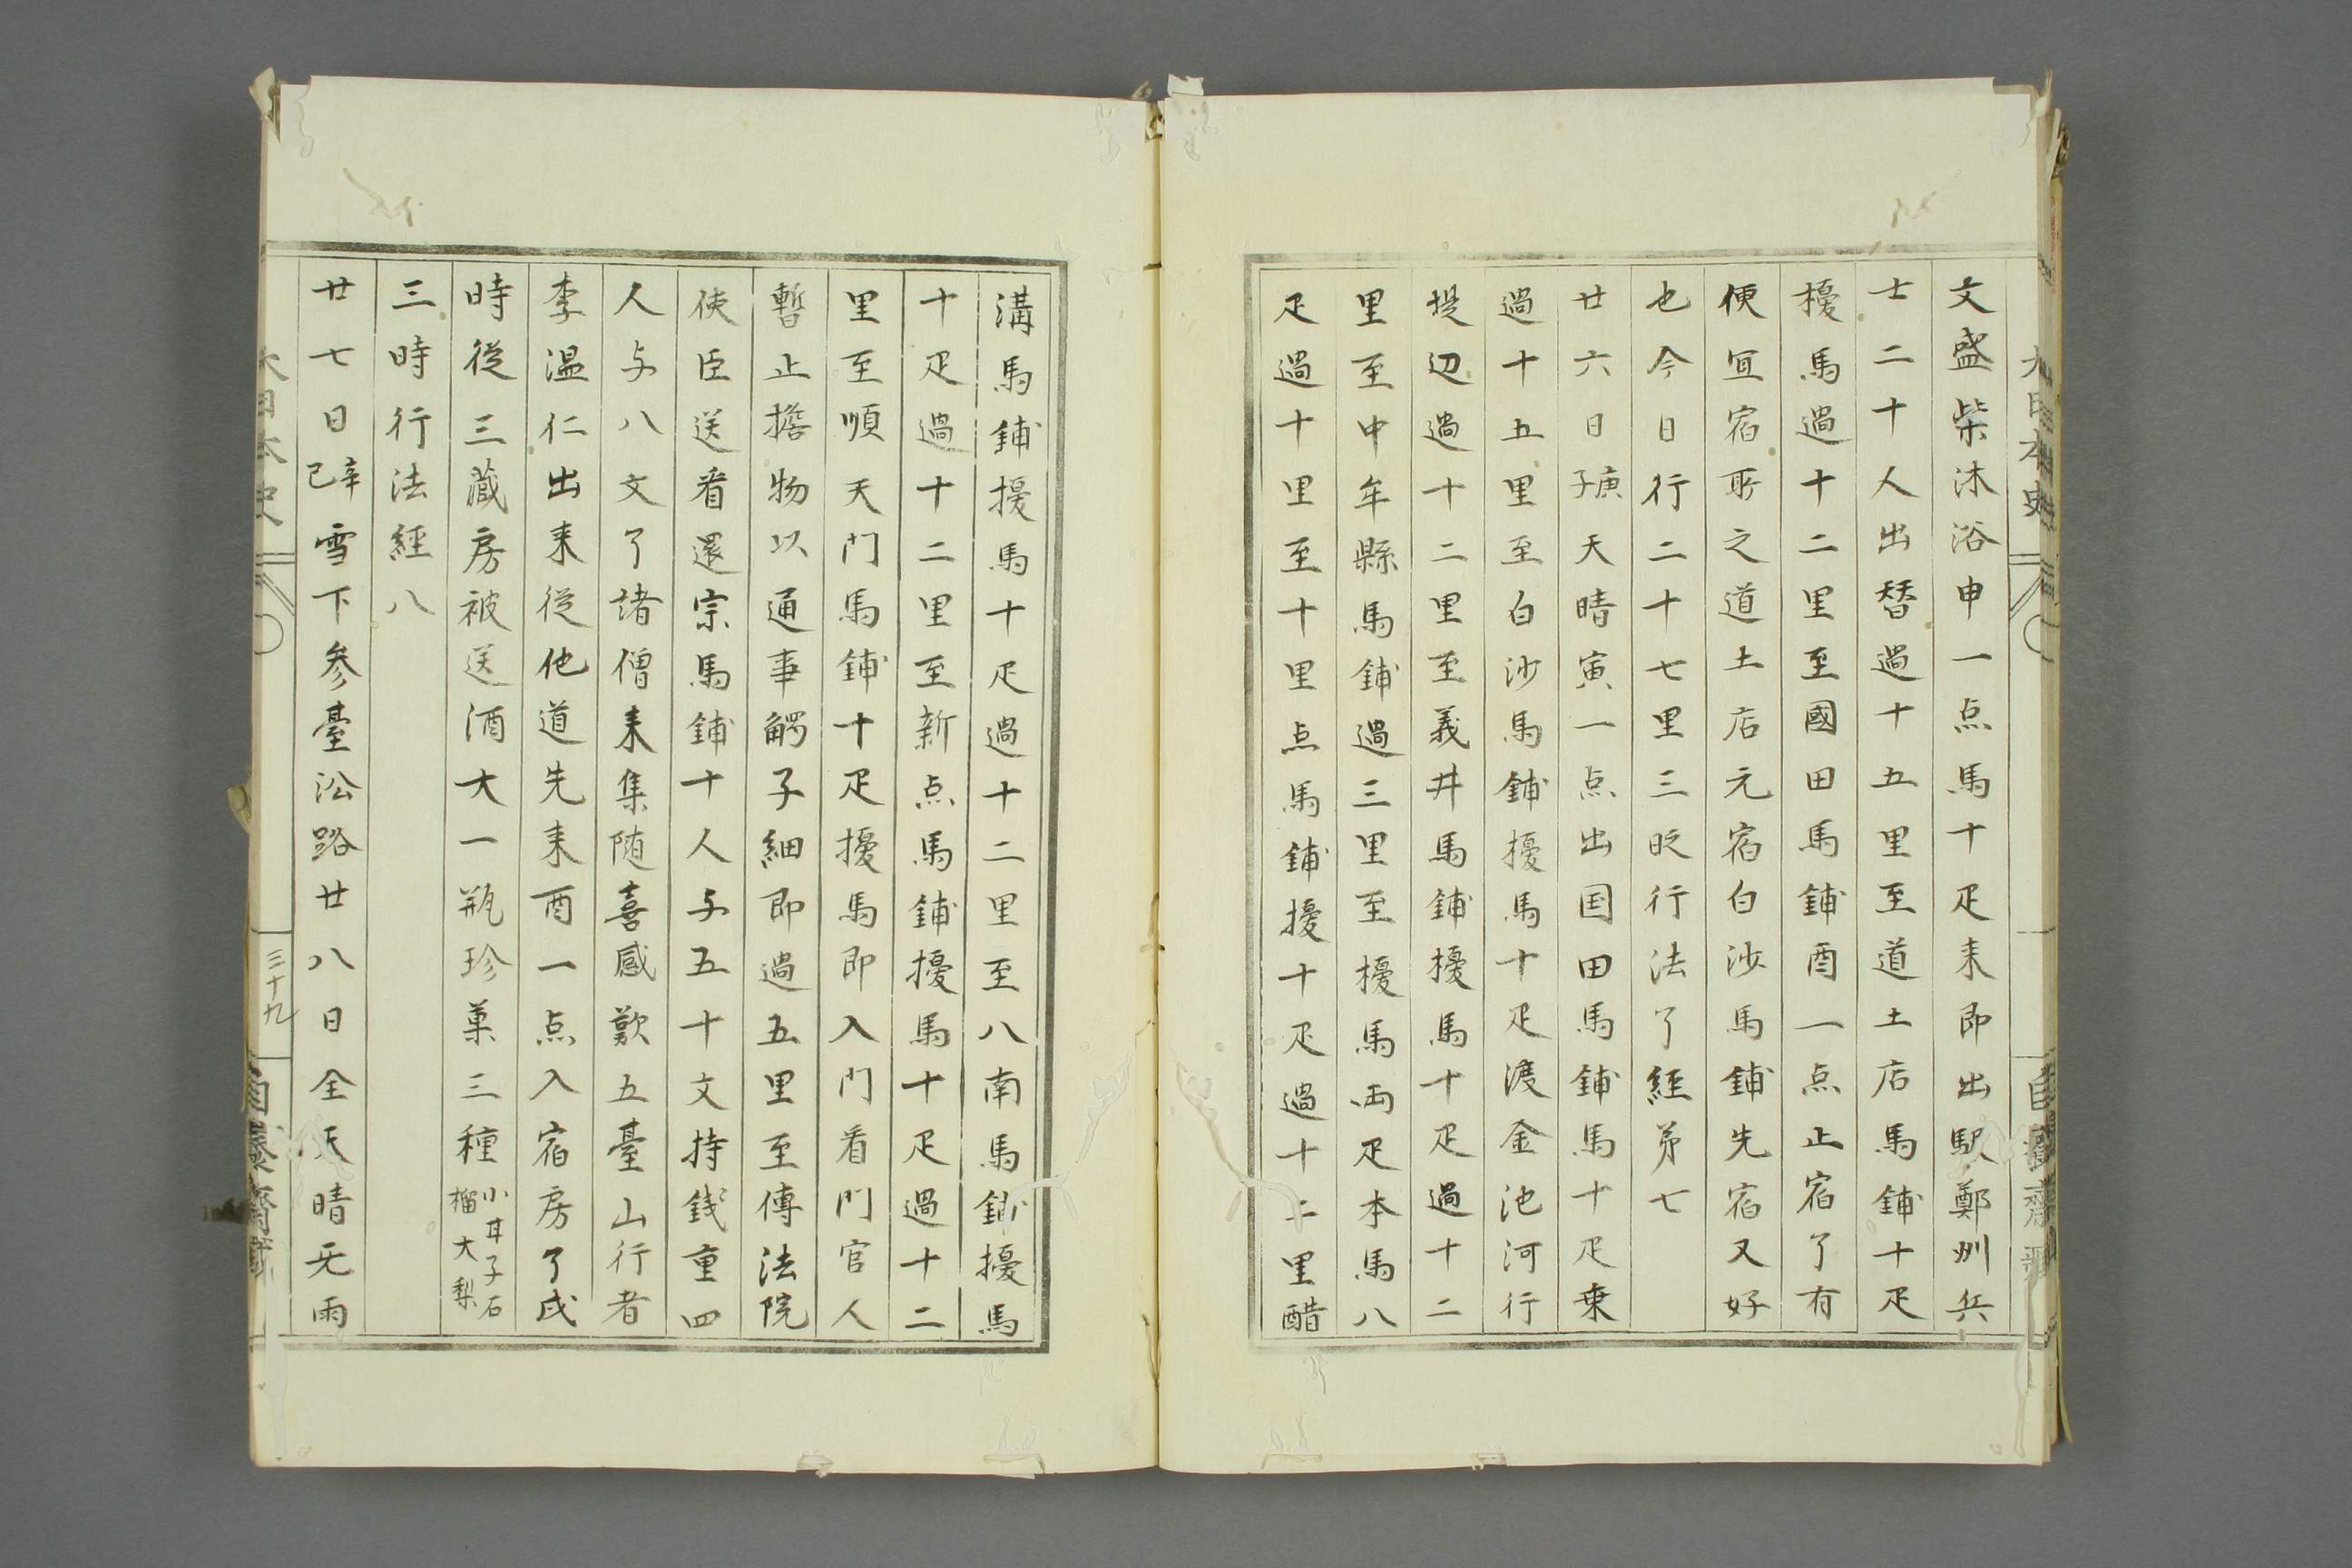 文盛柴沐浴申一点馬十疋来即出駅鄭州兵
士二十人出替過十五里至道土店馬鋪十疋
擾馬過十二里至國田馬鋪酉一点止宿了有
便宜宿所之道土店元宿白沙馬鋪先宿又好
也今日行二十七里三時行法了經第七
廿六日庚子天晴寅一点出国田馬鋪馬十疋乗
過十五里至白沙馬鋪擾馬十疋渡金池河行
堤辺過十二里至義井馬鋪擾馬十疋過十二
里至中牟縣馬鋪過三里至擾馬両疋本馬八
疋過十里至十里点馬鋪擾十疋過十二里醋
溝馬鋪擾馬十疋過十二里至八南馬鋪擾馬
十疋過十二里至新点馬鋪擾馬十疋過十二
里至順天門馬鋪十疋擾馬即入門看門官人
暫止擔物以通事觸子細即過五里至傳法院
使臣送着還宗馬鋪十人与五十文持錢重四
人与八文了諸僧来集随喜感歎五臺山行者
李温仁出来従他道先来酉一点入宿房了戌
時従三蔵房被送酒大一瓶珍菓三種小甘子石榴大梨
三時行法經八
廿七日辛己雪下参臺㳂路廿八日全天晴无雨
大日本史
三十九